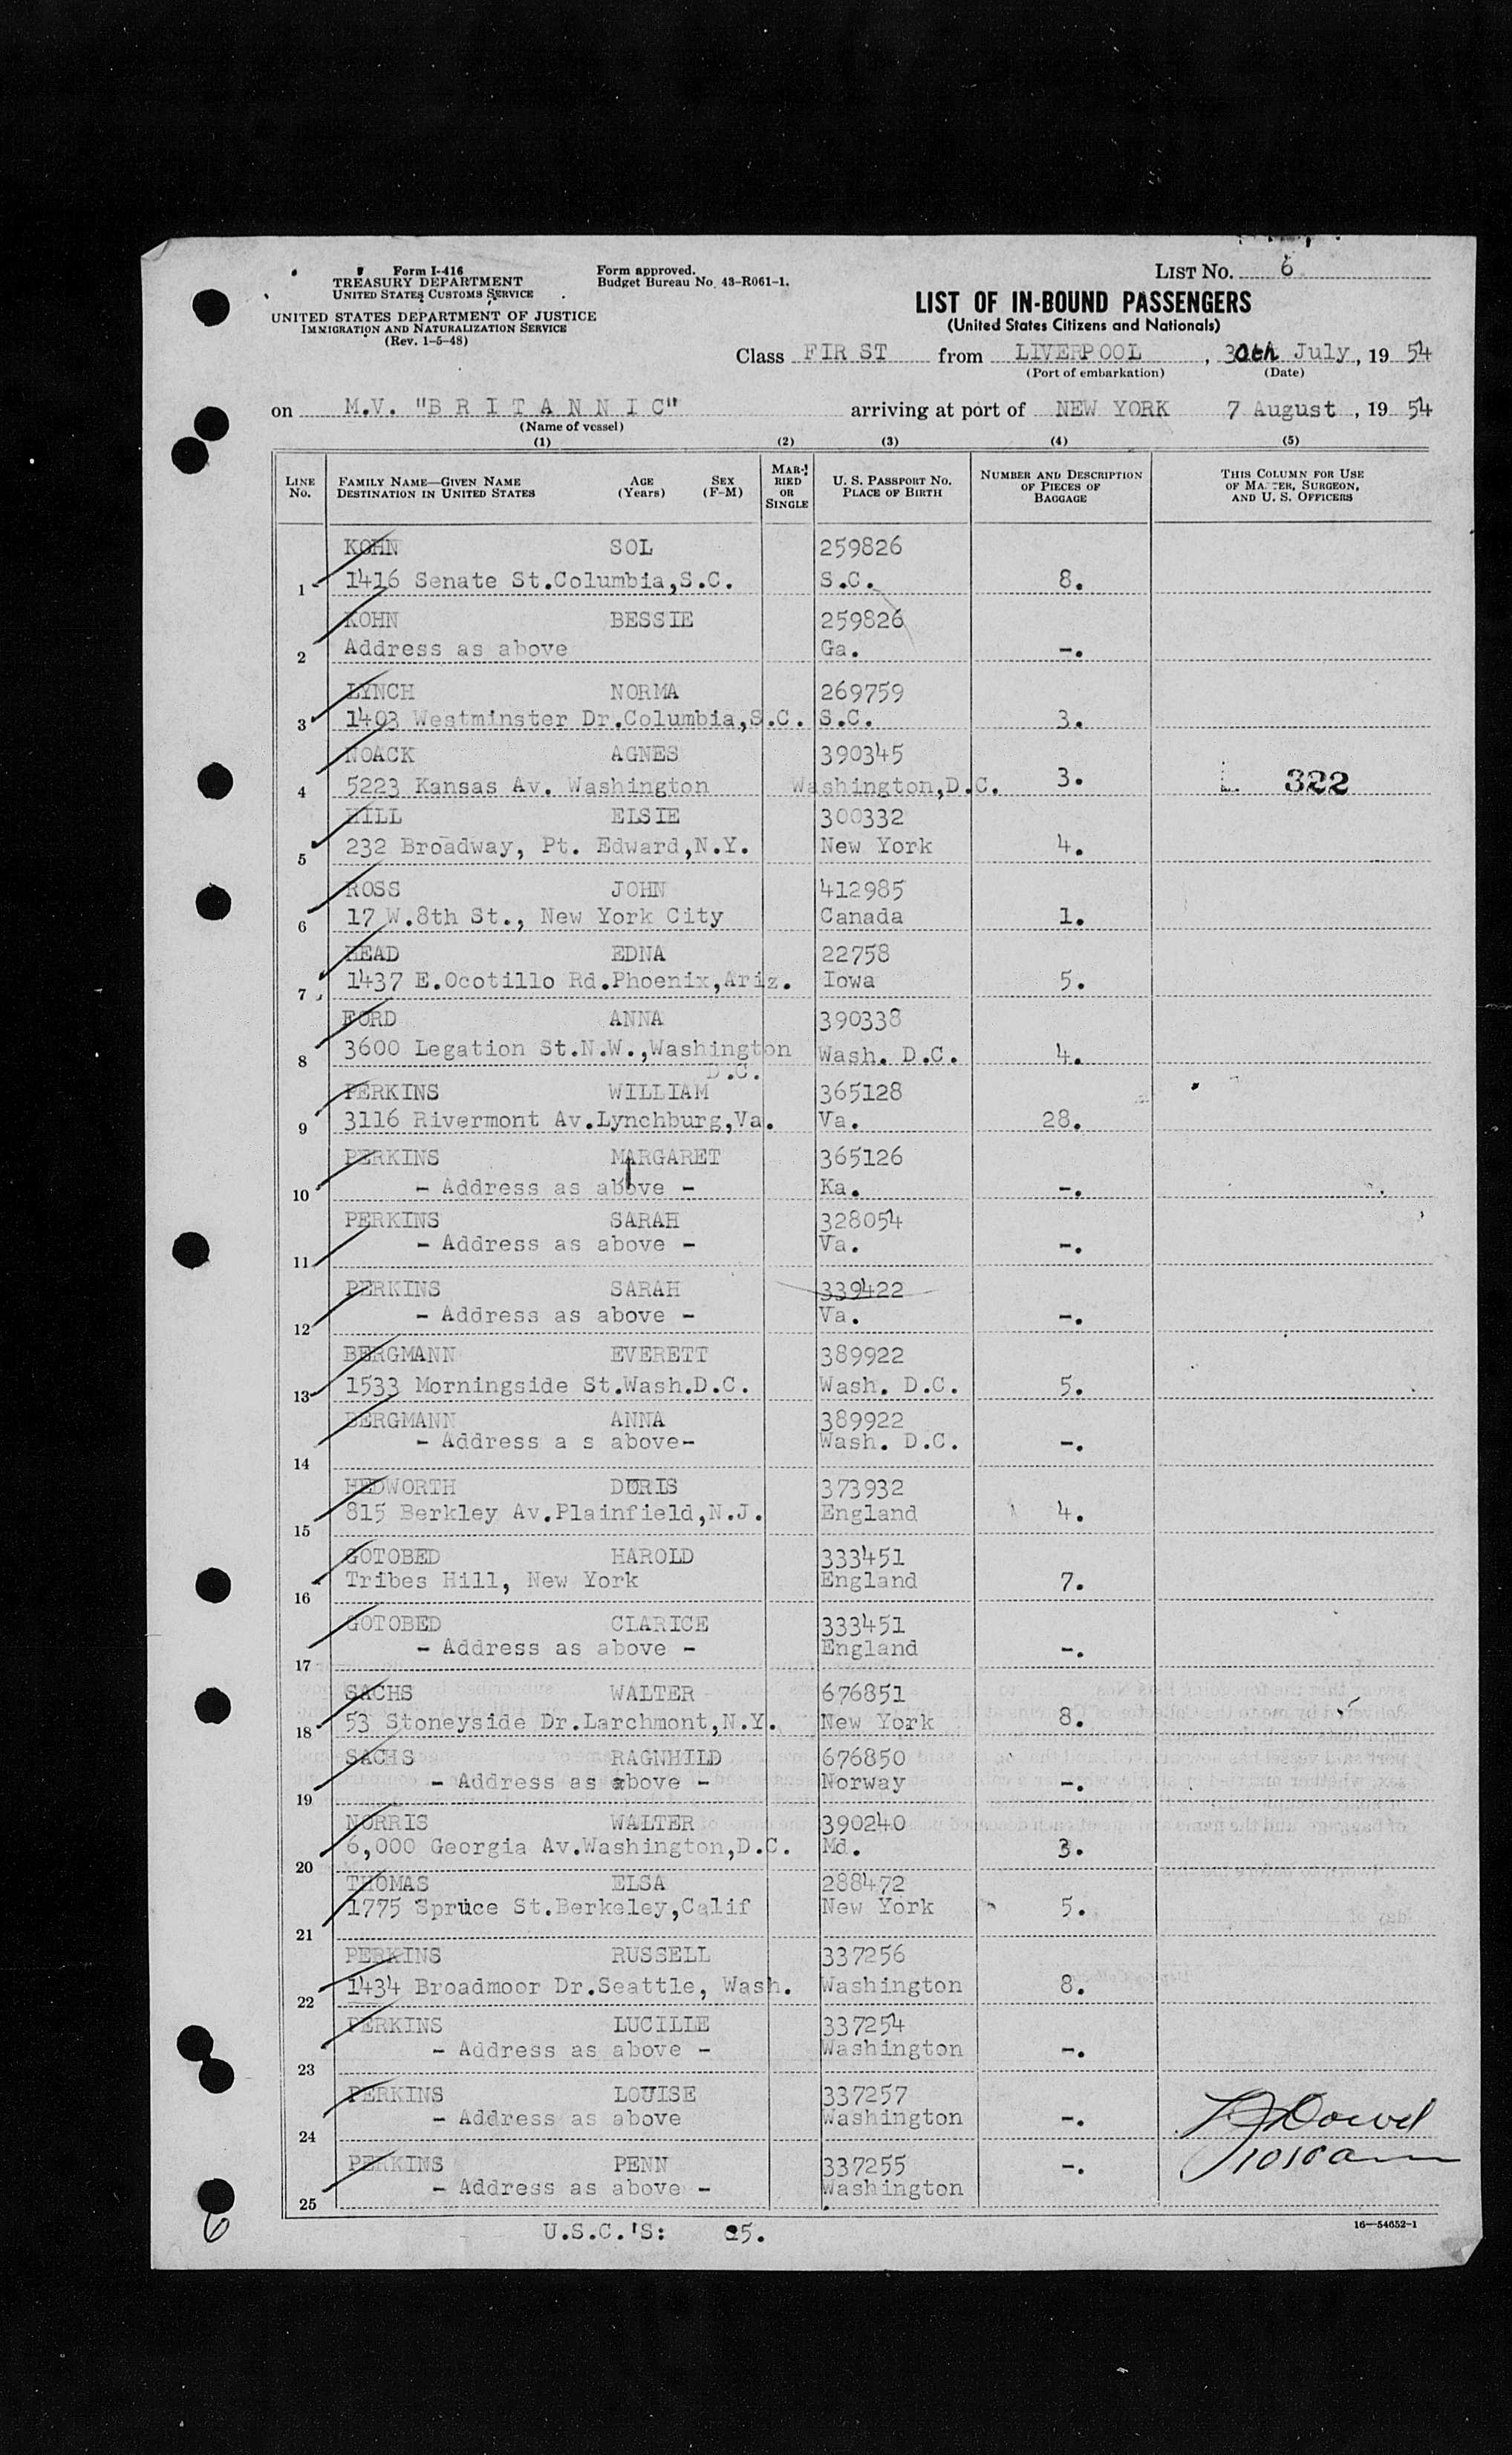 Form I-416
TREASURY DEPARTMENT
UNITED STATES CUSTOMS SERVICE
UNITED STATES DEPARTMENT OF JUSTICE
IMMIGRATION AND NATURALIZATION SERVICE
(Rev. 1-5-48)
Form approved.
Budget Bureau No. 43-R061-1.
LIST NO. 6
LIST OF IN-BOUND PASSENGERS
(United States Citizens and Nationals)
Class FIRST from LIVERPOOL, 30th July, 19 54
(Port of embarkation) (Date)
on M.V. "B R I T A N N I C" arriving at port of NEW YORK 7 August, 19 54
(Name of vessel)
(1) (2) (3) (4) (5)
LINE NO. FAMILY NAME—GIVEN NAME DESTINATION IN UNITED STATES AGE (Years) SEX (F-M) MARRIED OR SINGLE U. S. PASSPORT NO. PLACE OF BIRTH NUMBER AND DESCRIPTION OF PIECES OF BAGGAGE THIS COLUMN FOR USE OF MASTER, SURGEON, AND U. S. OFFICERS
KOHN SOL 259826
1 1416 Senate St.Columbia,S.C. S.C. 8.
KOHN BESSIE 259826
2 Address as above Ga. -.
LYNCH NORMA 269759
3 1403 Westminster Dr.Columbia,S.C. S.C. 3.
NOACK AGNES 390345
4 5223 Kansas Av. Washington Washington,D.C. 3. 322
HILL ELSIE 300332
5 232 Broadway, Pt. Edward,N.Y. New York 4.
ROSS JOHN 412985
6 17 W.8th St., New York City Canada 1.
HEAD EDNA 22758
7 1437 E.Ocotillo Rd.Phoenix,Ariz. Iowa 5.
FORD ANNA 390338
8 3600 Legation St.N.W.,Washington Wash. D.C. 4.
D.C.
PERKINS WILLIAM 365128
9 3116 Rivermont Av.Lynchburg,Va. Va. 28.
PERKINS MARGARET 365126
10 - Address as above - Ka. -.
PERKINS SARAH 328054
11 - Address as above - Va. -.
PERKINS SARAH 339422
12 - Address as above - Va. -.
BERGMANN EVERETT 389922
13 1533 Morningside St.Wash.D.C. Wash. D.C. 5.
BERGMANN ANNA 389922
14 - Address a s above- Wash. D.C. -.
HEDWORTH DORIS 373932
15 815 Berkley Av.Plainfield,N.J. England 4.
GOTOBED HAROLD 333451
16 Tribes Hill, New York England 7.
GOTOBED CLARICE 333451
17 - Address as above - England -.
SACHS WALTER 676851
18 53 Stoneyside Dr.Larchmont,N.Y. New York 8.
SACHS RAGNHILD 676850
19 - Address as above - Norway -.
NORRIS WALTER 390240
20 6,000 Georgia Av.Washington,D.C. Md. 3.
THOMAS ELSA 288472
21 1775 Spruce St.Berkeley,Calif New York 5.
PERKINS RUSSELL 337256
22 1434 Broadmoor Dr.Seattle, Wash. Washington 8.
PERKINS LUCILLE 337254
23 - Address as above - Washington -.
PERKINS LOUISE 337257
24 - Address as above Washington -.
PERKINS PENN 337255
25 - Address as above - Washington -.
U.S.C.'S: 25.
16—54652-1
6